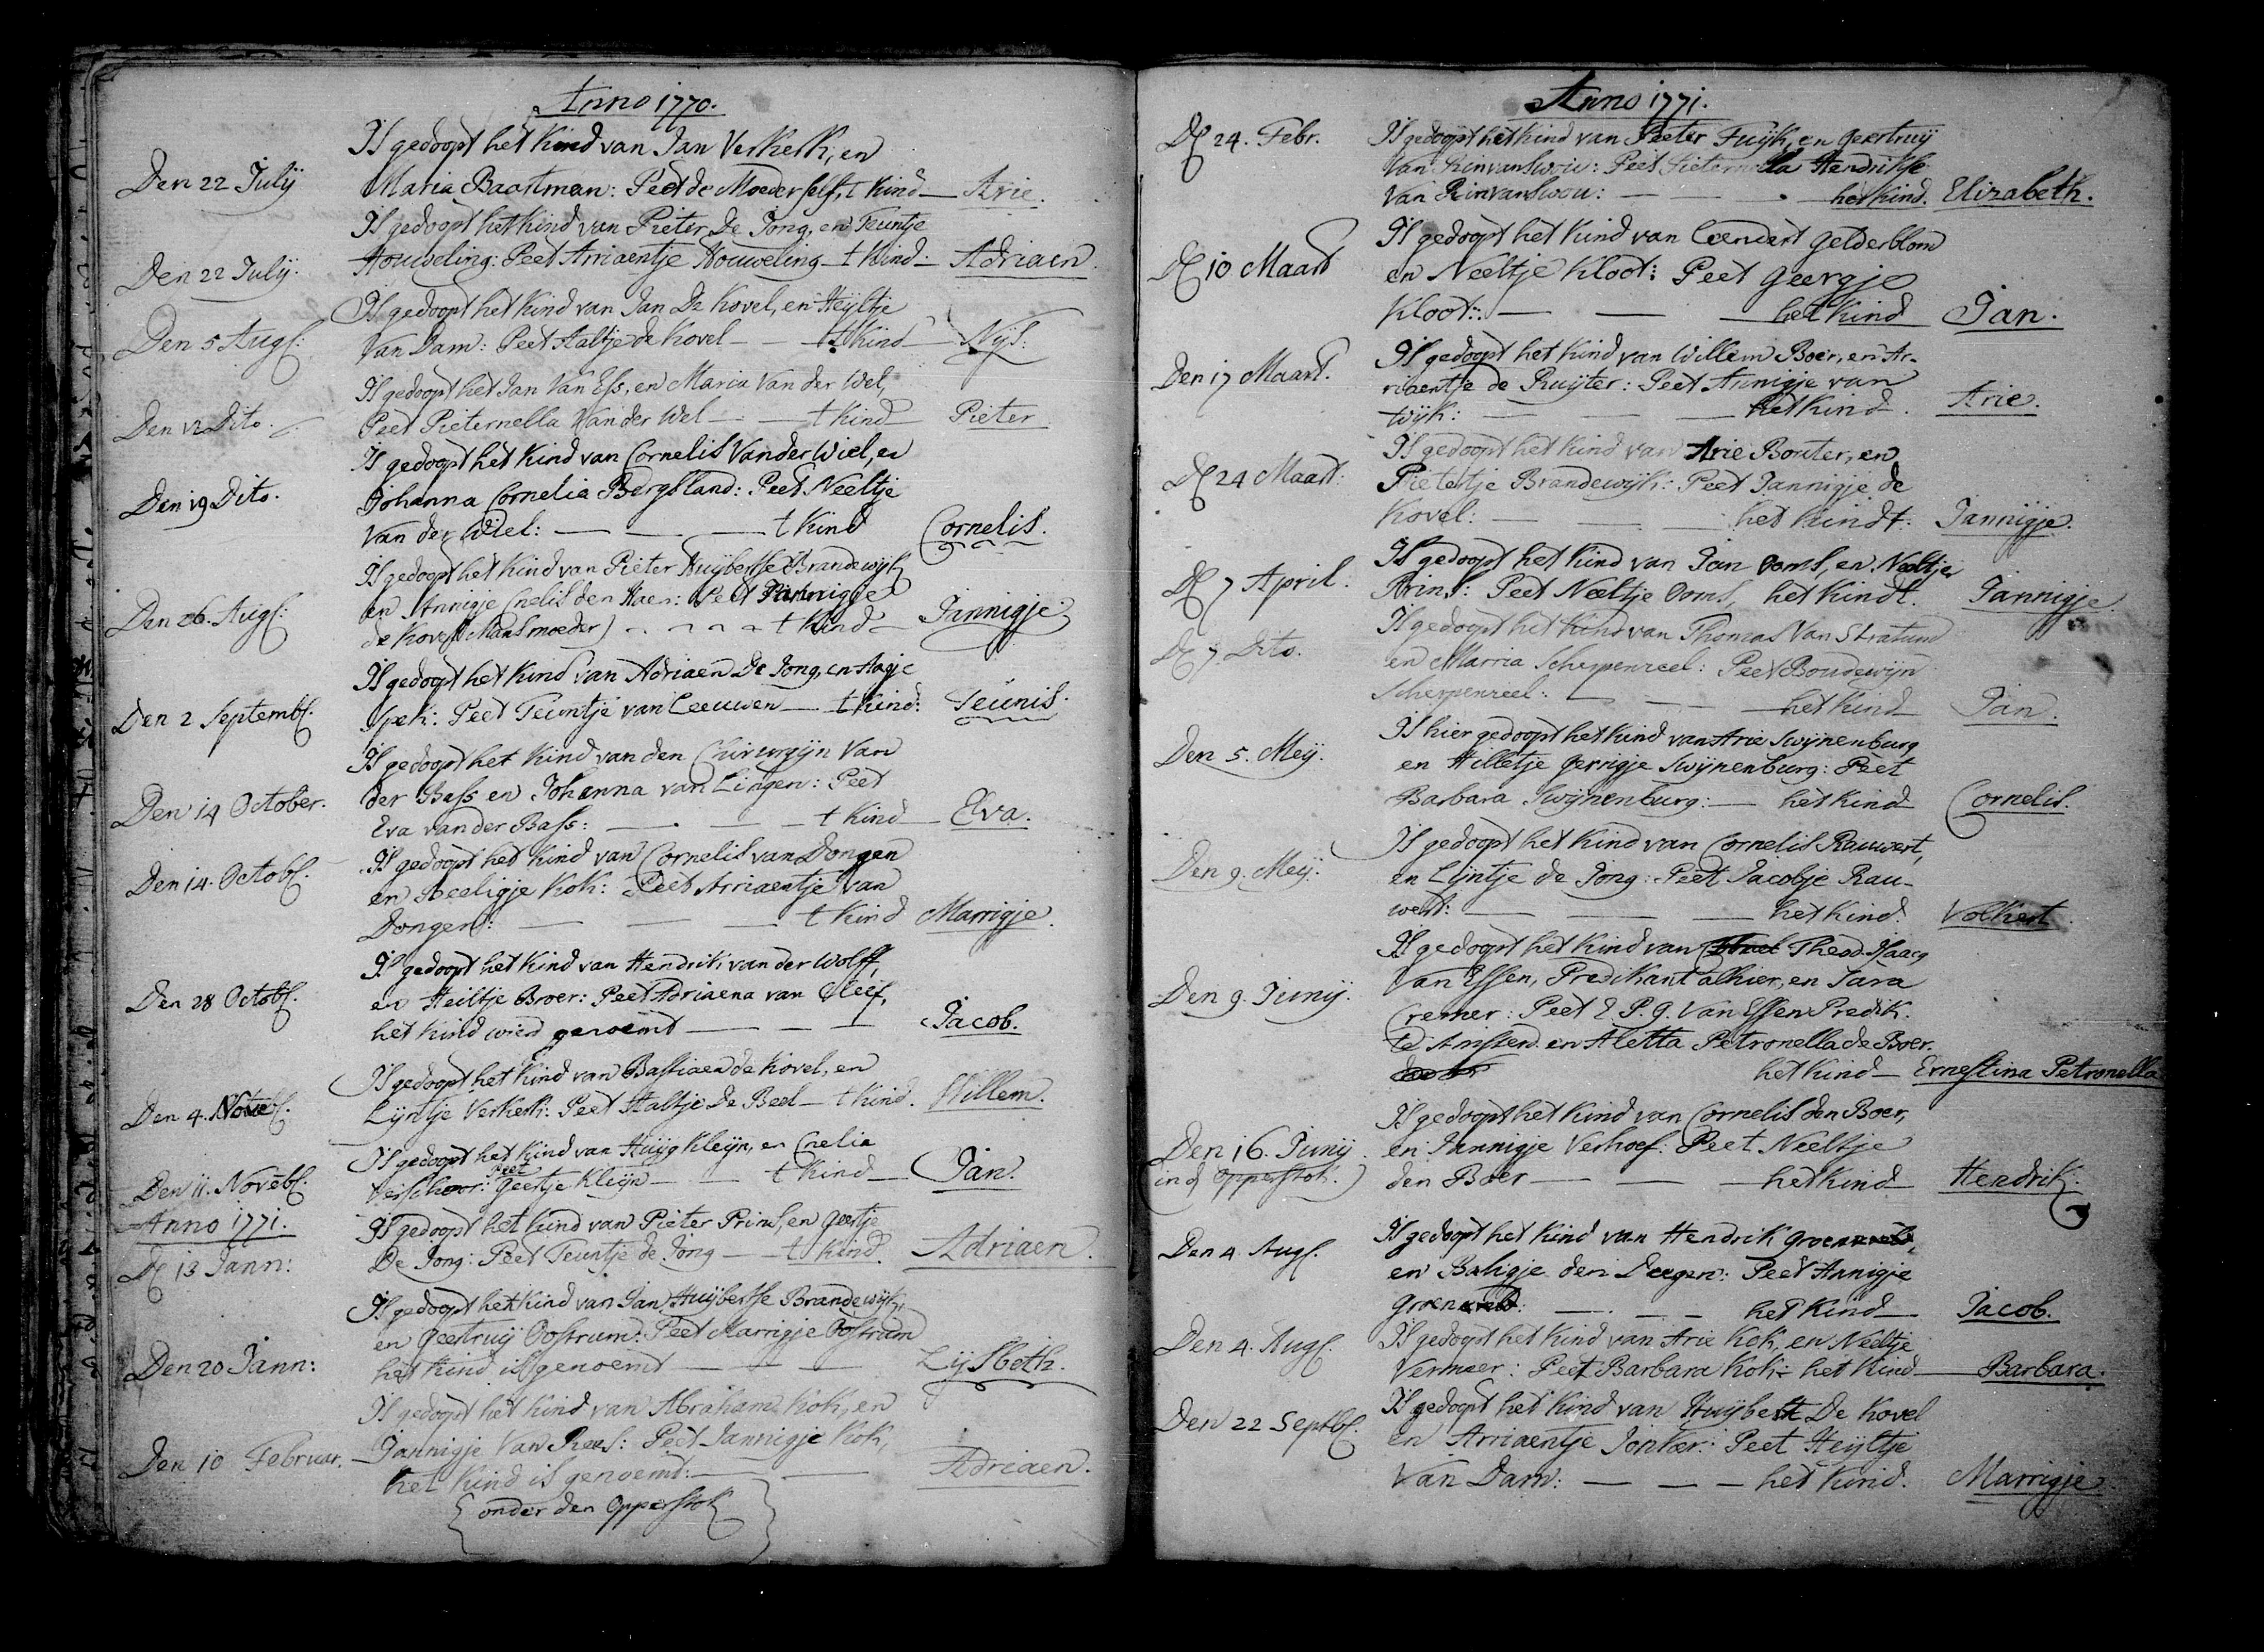 Anno 1770.
Den 22 July
Is gedoopt het kind van Jan Verkerk, en
Maria Baartman: Peet de Moeder self, t kind — Arie.
Den 22 July.
Is gedoopt het kind van Pieter De Jong, en Teuntje
Houweling: Peet Arriaentje Houweling — t kind — Adriaen.
Den 5 Aug:
Is gedoopt het kind van Jan De Kovel, en Heyltje
Van Dam: Peet Aaltje de Kovel — — t kind — Nys.
Den 12 Dito.
Is gedoopt het Jan Van Ess, en Maria Van der Wel,
Peet Pieternella Van der Wel — — t kind Pieter
Den 19 Dito.
Is gedoopt het kind van Cornelis Van der Wiel, en
Johanna Cornelia Bergsland: Peet Neeltje
Van der Wiel: — — — t kind Cornelis.
Den 26. Aug:
Is gedoopt het kind van Pieter Huybertse Brandewyk
en Annigje Cnelis den Haen: Peet Jannigje
de Kovel (Mans moeder) — — t kind — Jannigje
Den 2 Septemb:
Is gedoopt het kind van Adriaen De Jong, en Aagje
Spek: Peet Teuntje van Leeuwen — t kind: Teunis.
Den 14 October.
Is gedoopt het kind van den Chirurgyn Van
der Bass en Johanna van Lingen: Peet
Eva van der Bass: — — — t kind — Eva.
Den 14. Octob:
Is gedoopt het kind van Cornelis van Dongen
en Beeligje Kok: Peet Arriaentje van
Dongen: — — — t kind Marrigje.
Den 28 Octob:
Is gedoopt het kind van Hendrik van der Wolff,
en Heiltje Broer: Peet Adriaena van Cleef,
het kind wierd genoemt — — — Jacob.
Den 4. Noveb:
Is gedoopt het kind van Bastiaen de Kovel, en
Lyntje Verkerk: Peet Aaltje De Beel — t kind. Willem.
Den 11. Noveb:
Is gedoopt het kind van Huyg Kleyn, en Cnelia
Verschoor: Peet Geertje Kleyn — — t kind — Jan.
Anno 1771.
D 13 Jann:
Is gedoopt het kind van Pieter Prins, en Geertje
De Jong: Peet Teuntje de Jong — t kind. Adriaen.
Den 20 Jann:
Is gedoopt het kind van Jan Huybertse Brandewyk,
en Geertruy Oostrum: Peet Marrigje Oostrum
het kind is genoemt — — — Lysbeth.
Den 10 Februar.
Is gedoopt het kind van Abraham Kok, en
Jannigje Van Rees: Peet Jannigje Kok,
het kind is genoemt: — — Adriaen.
{ onder den Opperstok }
Anno 1771.
D 24. Febr.
Is gedoopt het kind van Peeter Fuyk, en Geertruy
Van Rinvanswou: Peet Pieternella Hendrikse
Van Rinvanswou: — — — het kind. Elizabeth.
D 10 Maart
Is gedoopt het kind van Leendert Gelderblom
en Neeltje Kloot: Peet Geergje
Kloot: — — — het kind Jan.
Den 17 Maart.
Is gedoopt het kind van Willem Boer, en Ar-
riaentje de Ruyter: Peet Annigje van
Wyk: — — — het kind. Arie.
D 24 Maart.
Is gedoopt het kind van Arie Bouter, en
Pietertje Brandewyk: Peet Jannigje de
Kovel: — — — het kindt. Jannigje.
D 7 April.
Is gedoopt het kind van Jan Ooms, en Neeltje
Prins: Peet Neeltje Ooms, het kindt. Jannigje.
D 7 Dito.
Is gedoopt het kind van Thomas Van Stratum
en Marria Scherpenzeel: Peet Boudewyn
Scherpenzeel: — — — het kind Jan.
Den 5. Mey.
Is hier gedoopt het kind van Arie Swynenburg
en Hilletje Gerrigje Swynenburg: Peet
Barbara Swynenburg: — het kind Cornelis.
Den 9. Mey.
Is gedoopt het kind van Cornelis Rauwert,
en Lyntje de Jong: Peet Jacobje Rau-
wert: — — — het kind: Volkert.
Den 9. Juny.
Is gedoopt het kind van Theod. Isaacq
Van Essen, Predikant alhier, en Sara
Cremer: Peet E. P. G. Van Essen Predik.
te Anssen. en Aletta Petronella de Boer.
het kind — Ernestina Petronella
Den 16. Juny
(in d Opperstok.)
Is gedoopt het kind van Cornelis den Boer,
en Jannigje Verhoef: Peet Neeltje
den Boer — — — het kind Hendrik.
Den 4 Aug:
Is gedoopt het kind van Hendrik Groenevelt,
en Baligje den Deegen: Peet Annigje
Groenevelt: — — — het kind — Jacob.
Den 4. Aug:
Is gedoopt het kind van Arie Kok, en Neeltje
Vermeer: Peet Barbara Kok: het kind — Barbara.
Den 22 Septb:
Is gedoopt het kind van Huybert De Kovel
en Arriaentje Jonker: Peet Heyltje
Van Dam: — — — het kind. Marrigje